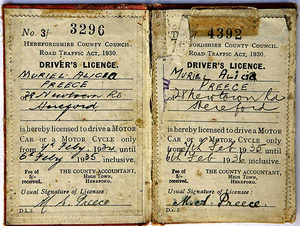 No. 3/ 3296
HEREFORDSHIRE COUNTY COUNCIL.
ROAD TRAFFIC ACT, 1930.
DRIVER'S LICENCE.
MURIEL ALICIA
PREECE
Newtown Rd
Hereford
is hereby licensed to drive a MOTOR
CAR or a MOTOR CYCLE only
from 7th Feby. 1934 until
6th Feby 1935 inclusive.
Fee of
5/-
received.
THE COUNTY ACCOUNTANT,
HIGH TOWN,
HEREFORD.
Usual Signature of Licensee :
M. A. Preece
D.L.3.
4392
HEREFORDSHIRE COUNTY COUNCIL.
ROAD TRAFFIC ACT, 1930.
DRIVER'S LICENCE.
MURIEL ALICIA
PREECE
Newtown
Hereford
is hereby licensed to drive a MOTOR
CAR or a MOTOR CYCLE only
from 7th Feb 1935 until
6th Feb 1936 inclusive.
Fee of
5/-
received.
THE COUNTY ACCOUNTANT,
HIGH TOWN,
HEREFORD.
Usual Signature of Licensee :
M. A. Preece.
D.L.3.